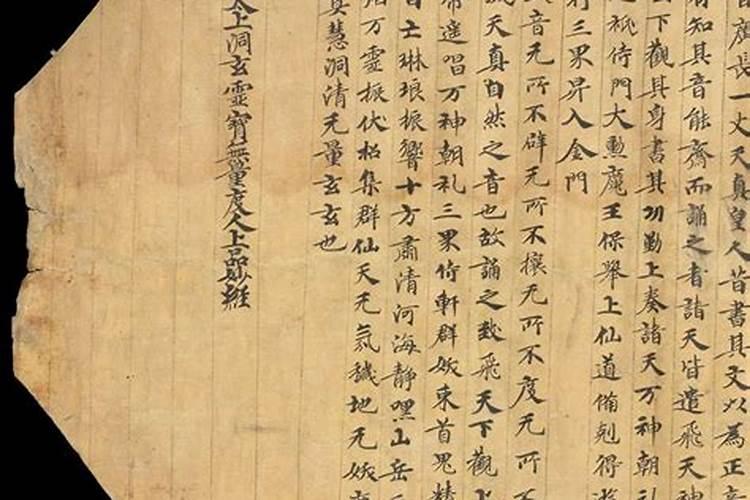 廣長一丈天真皇人昔書其文以為正音
有知其音能齋而誦之者諸天皆遣飛天神
下觀其身書其功勤上奏諸天万神朝礼
祇侍門大勳魔王保舉上仙道備剋得遊
行三界昇入金門
音无所不辟无所不攘无所不度无所不
天真自然之音也故誦之致飛天下觀上
帝遥唱万神朝礼三界侍軒群妖束首鬼精
自亡琳琅振響十方肅清河海靜嘿山岳
万靈振伏招集群仙天无氛穢地无妖
冥慧洞清无量玄玄也
太上洞玄靈寶無量度人上品妙經